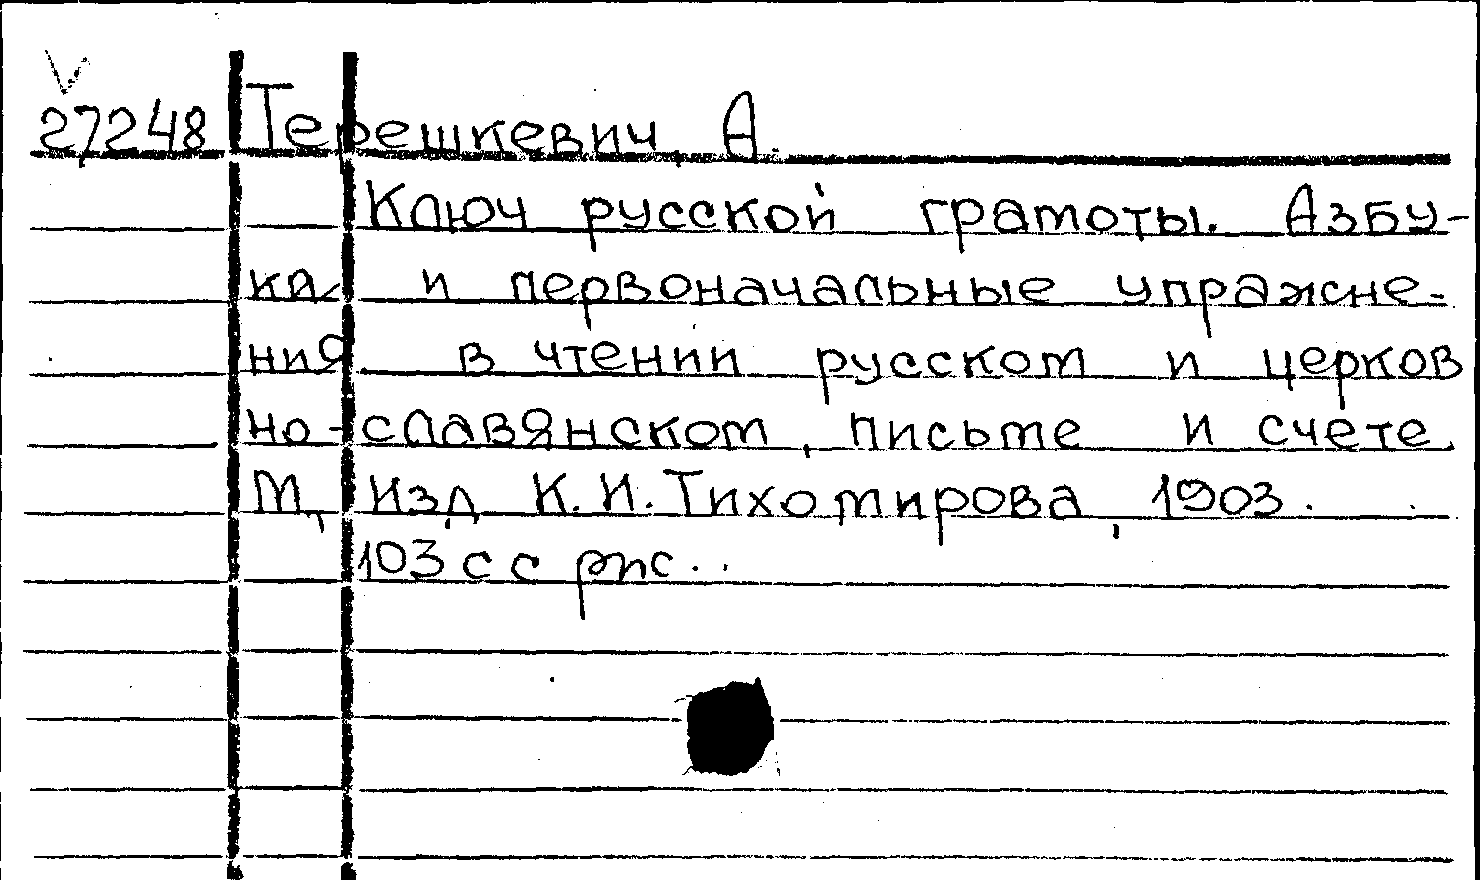 27248 Терешкевич, А.
Ключ русской грамоты. Азбу-
ка и первоначальные упражне-
ния в чтении русском и церков
но-славянском, письме и счете.
М, Изд К.И.Тихомирова, 1903.
103 с с рис.